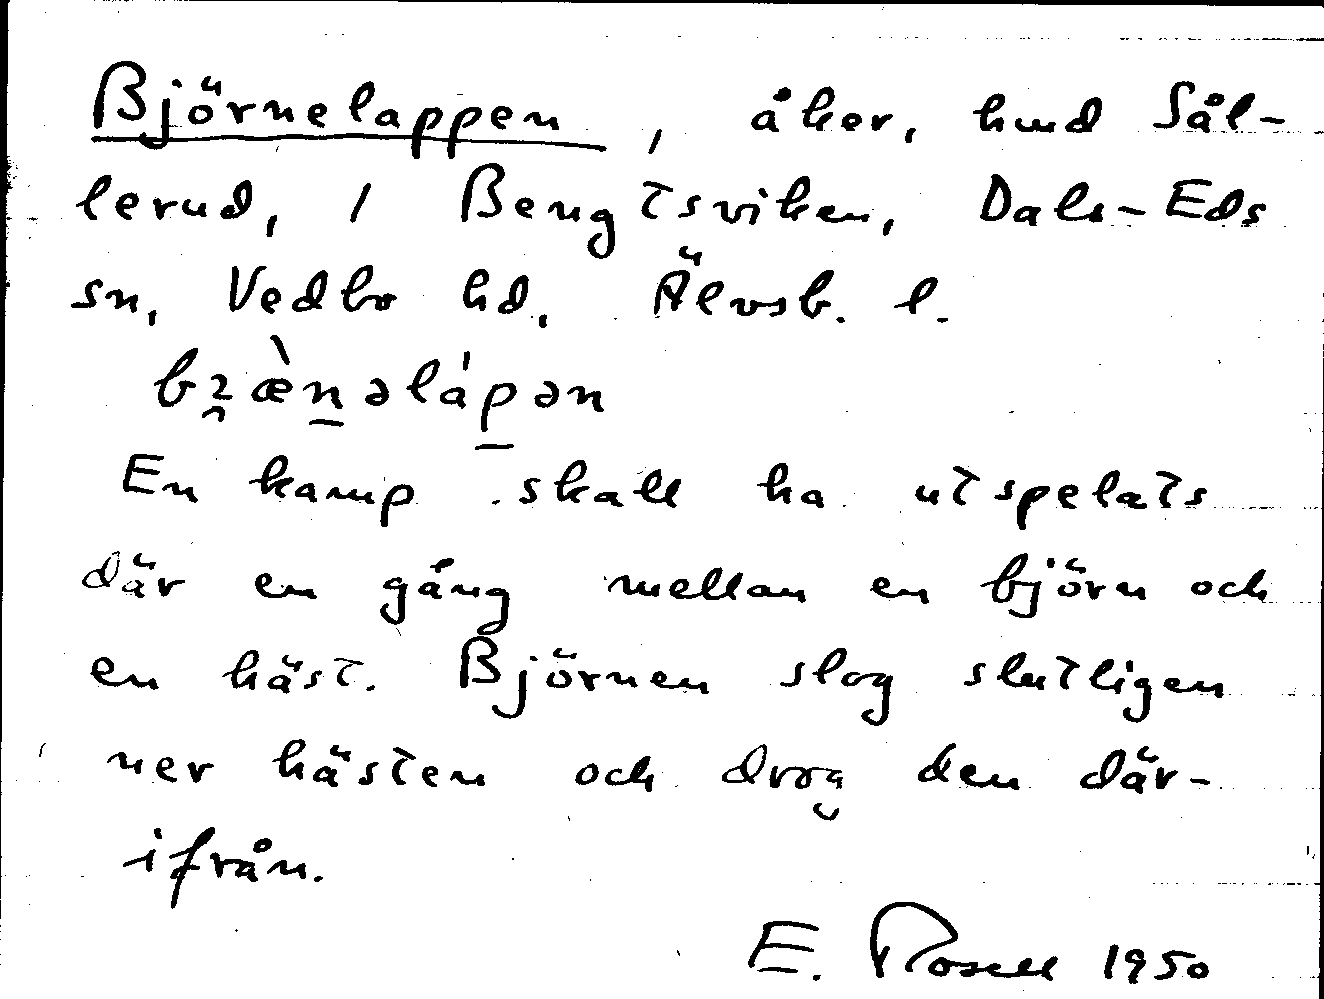 Björnelappen, åker, hmd Sål-
lerud, 1 Bengtsviken, Dals-Eds
sn, Vedbo hd, Älvsb. l.
En kamp skall ha utspelats
där en gång mellan en björn och
en häst. Björnen slog slutligen
ner hästen och drog den där-
ifrån.
E. Rosell 1950